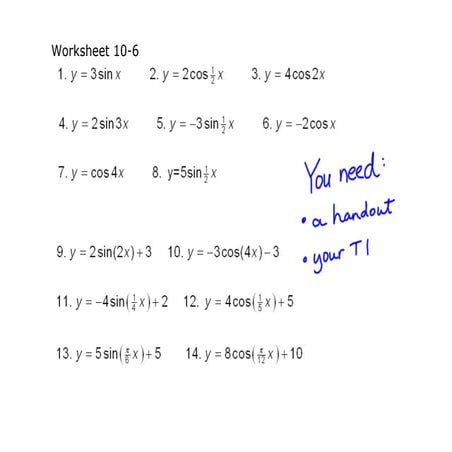 Worksheet 10-6
1. y = 3sin x 2. y = 2cos ½ x 3. y = 4cos2x
4. y = 2sin3x 5. y = −3sin ½ x 6. y = −2cos x
7. y = cos4x 8. y=5sin ½ x
You need:
• a handout
• your TI
9. y = 2sin(2x)+3 10. y = −3cos(4x)−3
11. y = −4sin(¼ x)+2 12. y = 4cos(⅕ x)+5
13. y = 5sin(π/6 x)+5 14. y = 8cos(π/12 x)+10